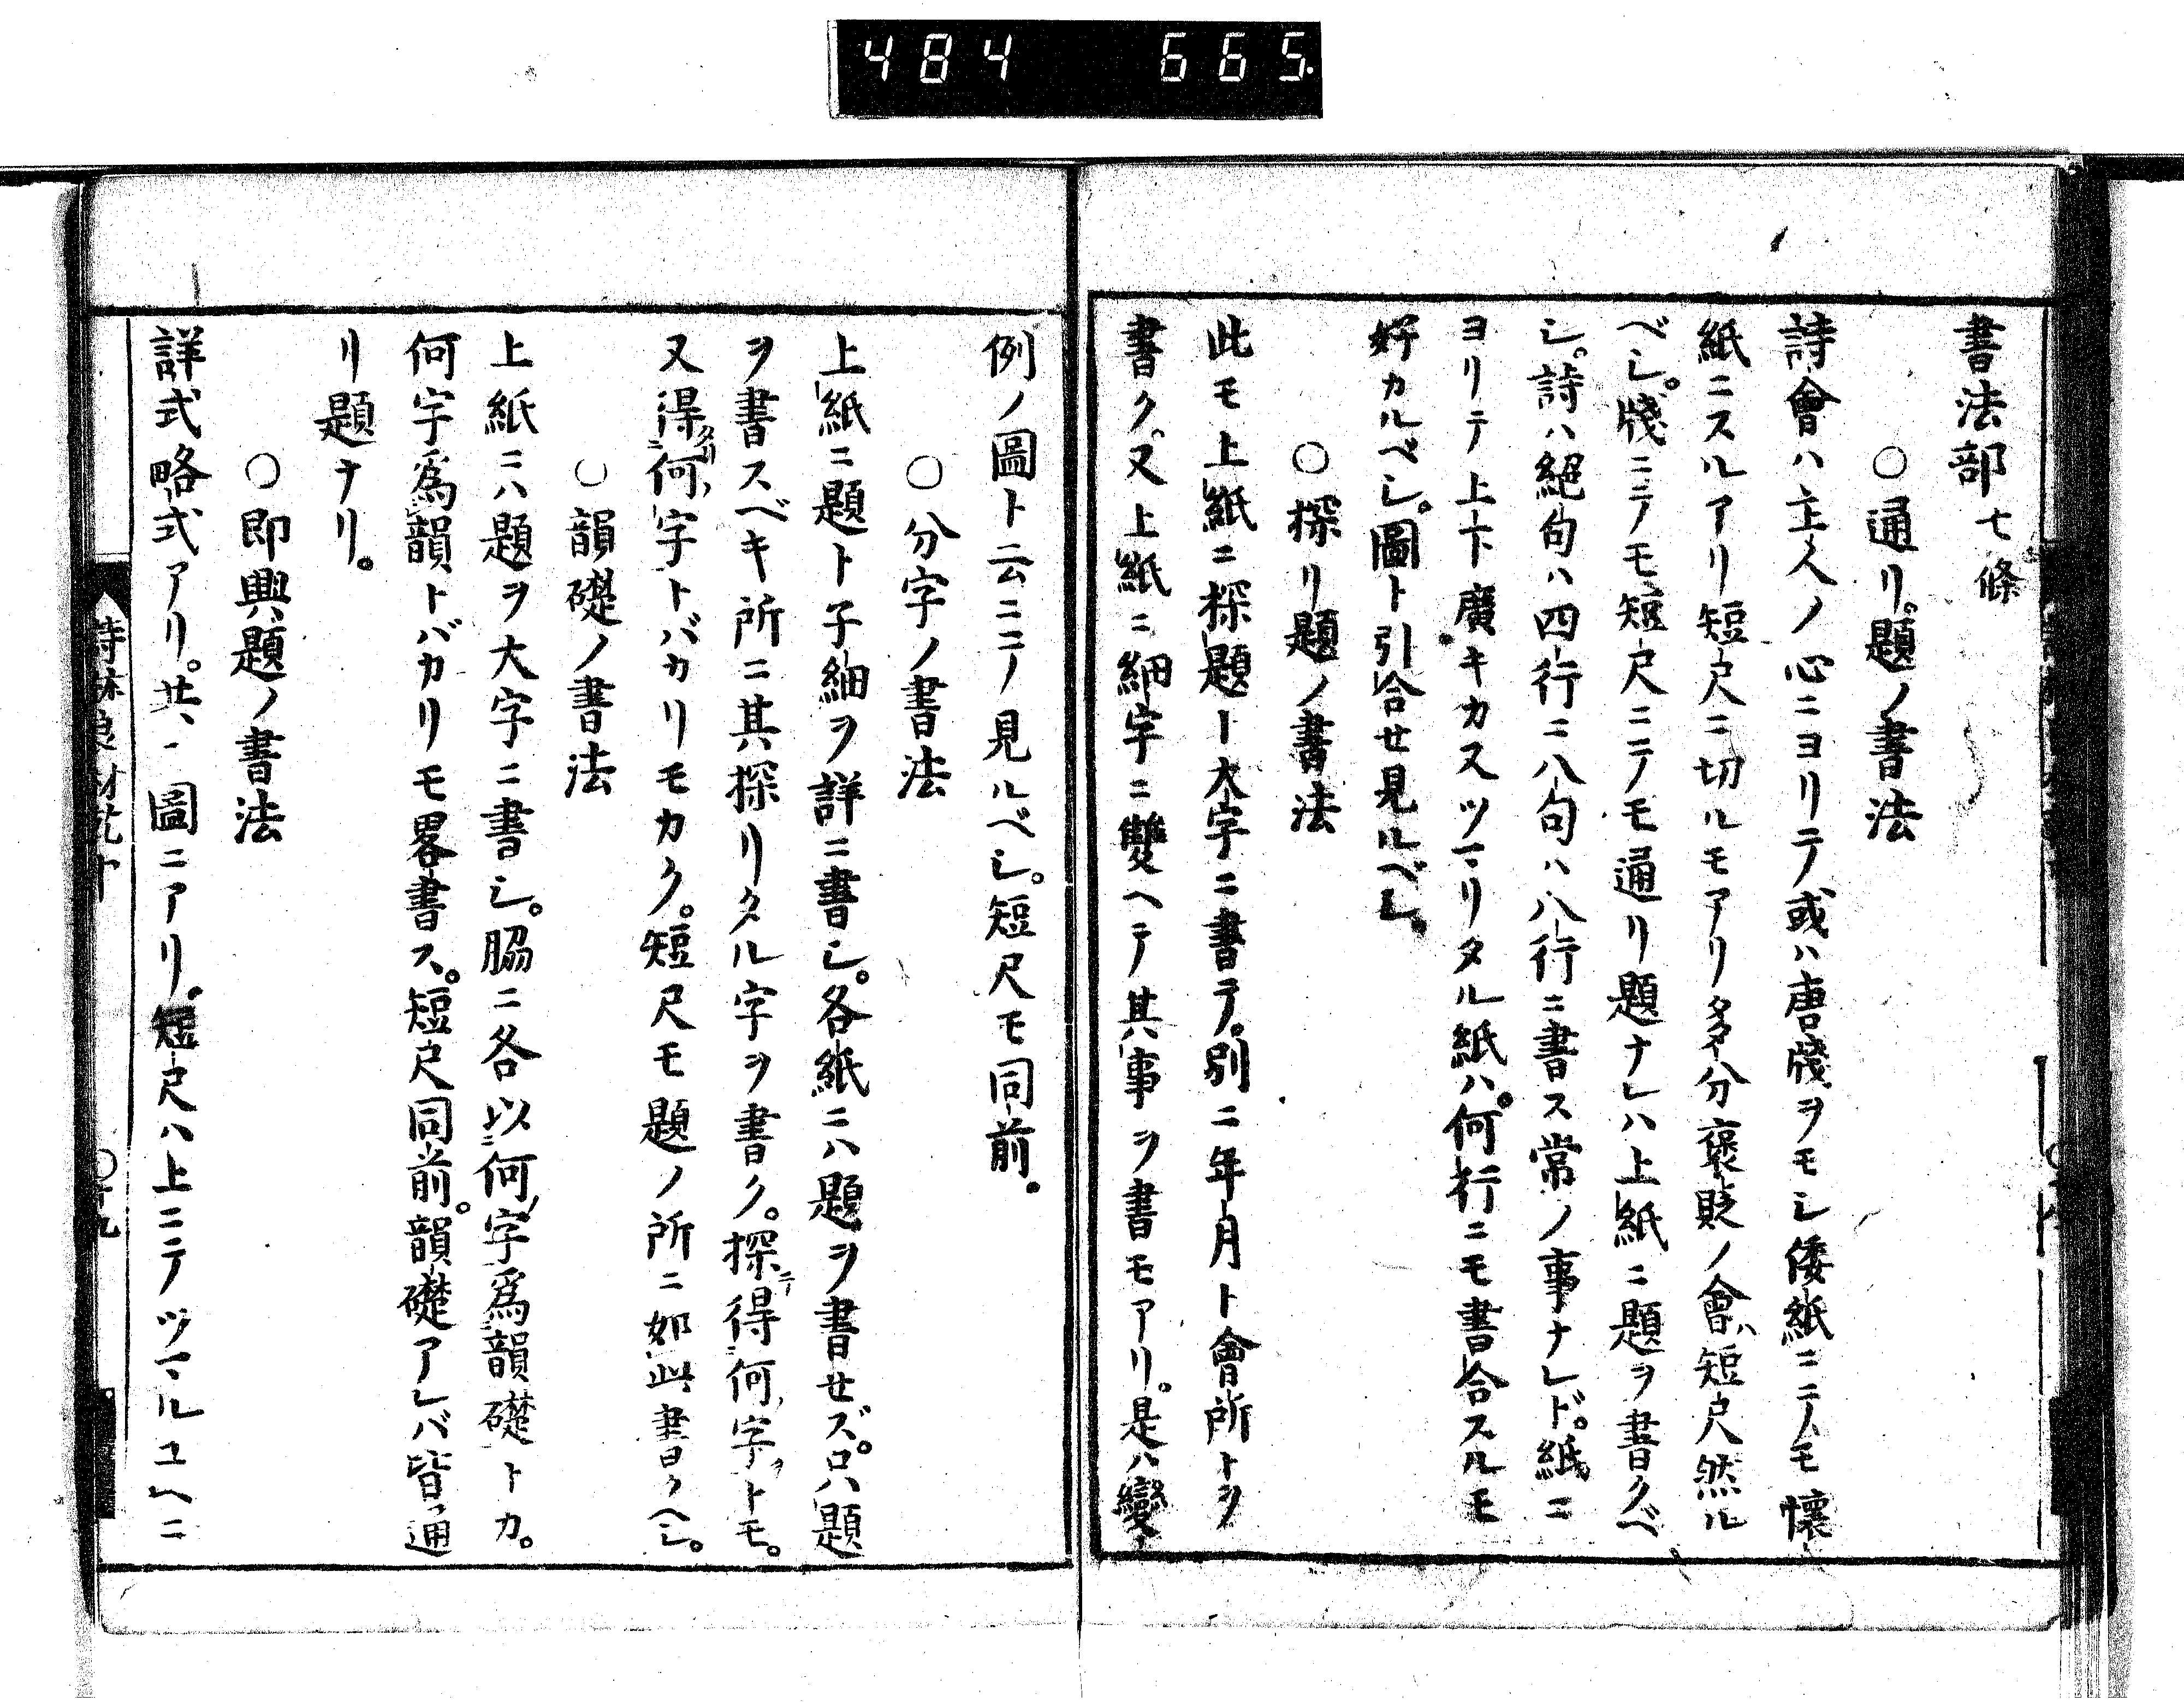 484 665
書法部七條
○通リ題ノ書法
詩會ハ主人ノ心ニヨリテ或ハ唐牋ヲモシ倭紙ニテモ懷
紙ニスルアリ短尺ニ切ルモアリ多分褒貶ノ會ハ短尺然ル
ベシ。牋ニテモ短尺ニテモ通リ題ナレハ上紙ニ題ヲ書クベ
シ。詩ハ絕句ハ四行ニ八句ハ八行ニ書ス常ノ事ナレド。紙ニ
ヨリテ上下廣キカスツマリタル紙ハ。何行ニモ書合スルモ
好カルベシ。圖ト引合セ見ルベシ。
○探リ題ノ書法
此モ上紙ニ探題ト大字ニ書テ。別ニ年月ト會所トヲ
書ク。又上紙ニ細字ニ雙ヘテ其事ヲ書モアリ。是ハ變
例ノ圖ト云ニテ見ルベシ。短尺モ同前。
○分字ノ書法
上紙ニ題ト子細ヲ詳ニ書シ。各紙ニハ題ヲ書セズ。只ハ題
ヲ書スベキ所ニ其探リタル字ヲ書ク。探テ得何ノ字ヲトモ。
又得何ノ字トバカリモカク。短尺モ題ノ所ニ如此書クヘシ。
○韻礎ノ書法
上紙ニハ題ヲ大字ニ書シ。脇ニ各以何ノ字爲韻礎トカ。
何字爲韻トバカリモ畧書ス。短尺同前。韻礎アレバ皆通
リ題ナリ。
○即興題ノ書法
詳式略式アリ。共ニ圖ニアリ。短尺ハ上ニテツマルユヘニ
詩林良材 十
○十九